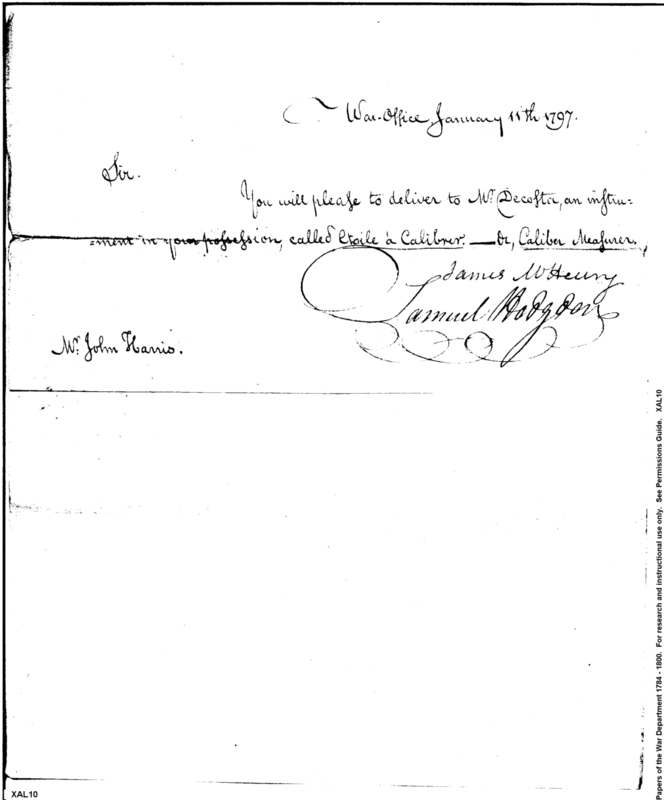 War-Office, January 11th 1797.
Sir.
You will please to deliver to Mr. Decosta, an instru=
=ment in your possession, called Etoile à Calibrer — Or, Caliber Measurer.
James McHenry
Samuel Hodgdon
Mr. John Harris.
Papers of the War Department 1784 - 1800. For research and instructional use only. See Permissions Guide. XAL10
XAL10